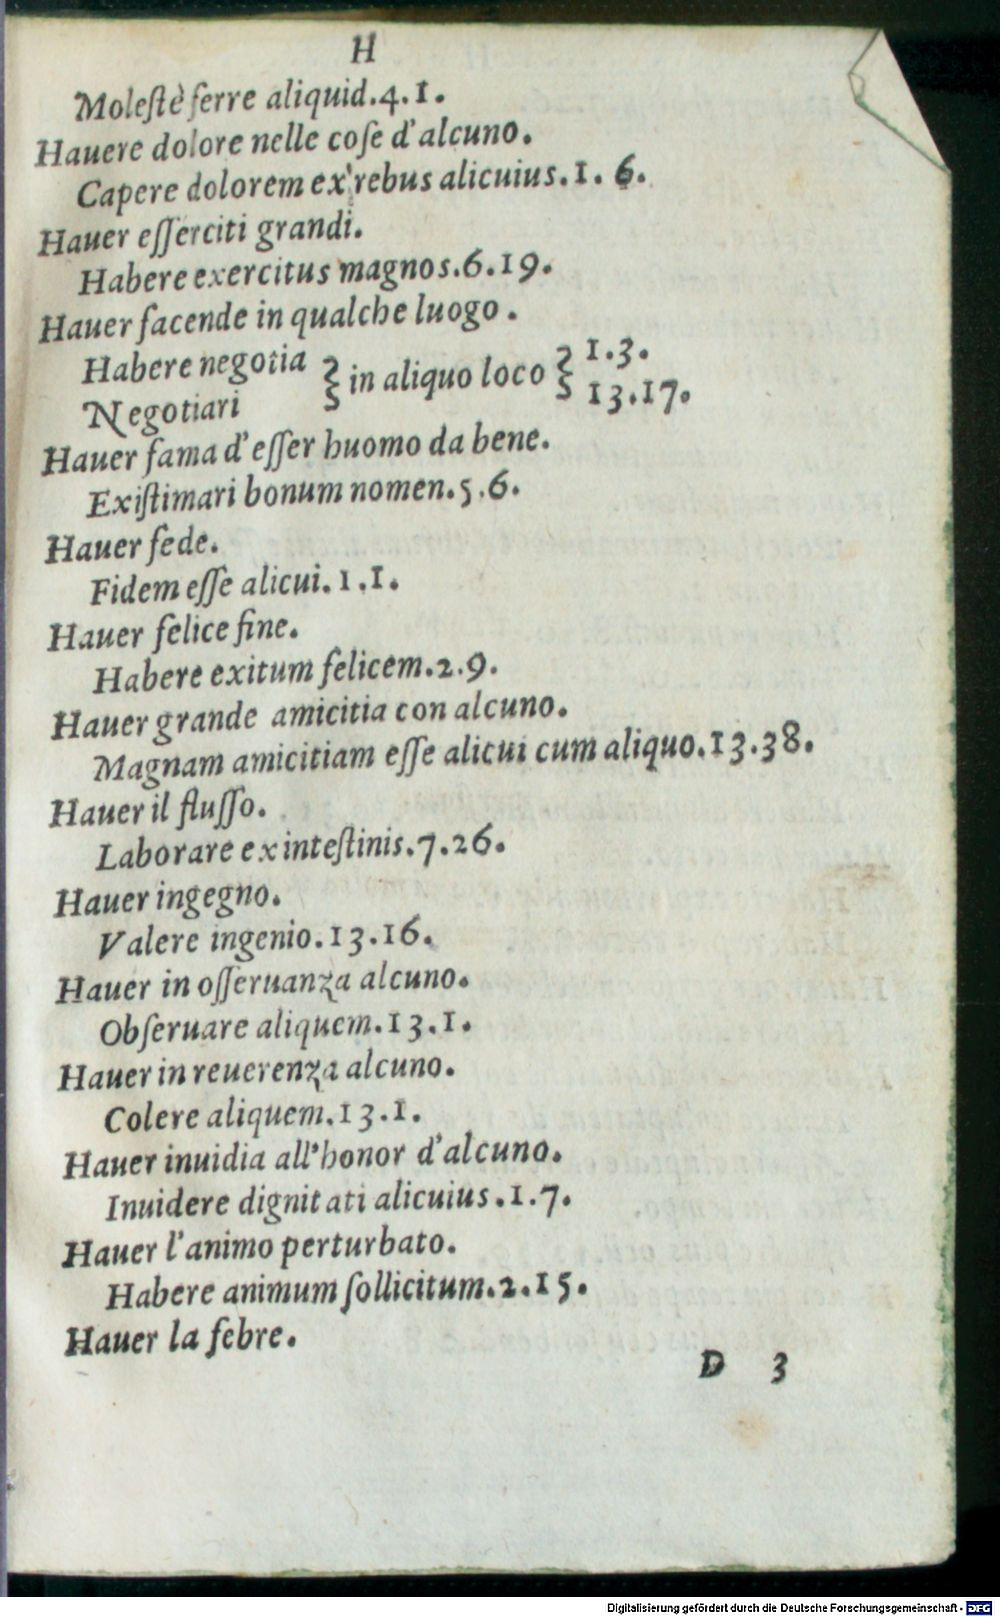 H
Moleſtè ferre aliquid.4.1.
Hauere dolore nelle coſe d'alcuno.
Capere dolorem ex rebus alicuius.1.6.
Hauer eſſerciti grandi.
Habere exercitus magnos.6.19.
Hauer facende in qualche luogo.
Habere negotia } in aliquo loco } 1.3.
Negotiari 13.17.
Hauer fama d'eſſer huomo da bene.
Exiſtimari bonum nomen.5.6.
Hauer fede.
Fidem eſſe alicui.1.1.
Hauer felice fine.
Habere exitum felicem.2.9.
Hauer grande amicitia con alcuno.
Magnam amicitiam eſſe alicui cum aliquo.13.38.
Hauer il fluſſo.
Laborare ex inteſtinis.7.26.
Hauer ingegno.
Valere ingenio.13.16.
Hauer in oſſeruanza alcuno.
Obſeruare aliquem.13.1.
Hauer in reuerenza alcuno.
Colere aliquem.13.1.
Hauer inuidia all'honor d'alcuno.
Inuidere dignitati alicuius.1.7.
Hauer l'animo perturbato.
Habere animum ſollicitum.2.15.
Hauer la febre.
D 3
Digitalisierung gefördert durch die Deutsche Forschungsgemeinschaft - DFG